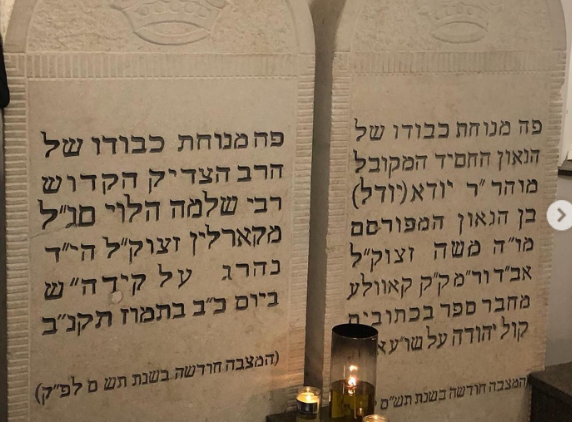 פה מנוחת כבודו של
הגאון החסיד המקובל
מוהר״ר יודא (יודל)
בן הגאון המפורסם
מו״ה משה זצוק״ל
אב״ד ור״מ ק״ק קאוולע
מחבר ספר בכתובים
קול יהודה על שו״ע
המצבה חודשה בשנת תש״ס
פה מנוחת כבודו של
הרב הצדיק הקדוש
רבי שלמה הלוי סג״ל
מקארלין זצוק״ל הי״ד
נהרג על קידה״ש
ביום כ״ב בתמוז תקנ״ב
(המצבה חודשה בשנת תש ס לפ״ק)